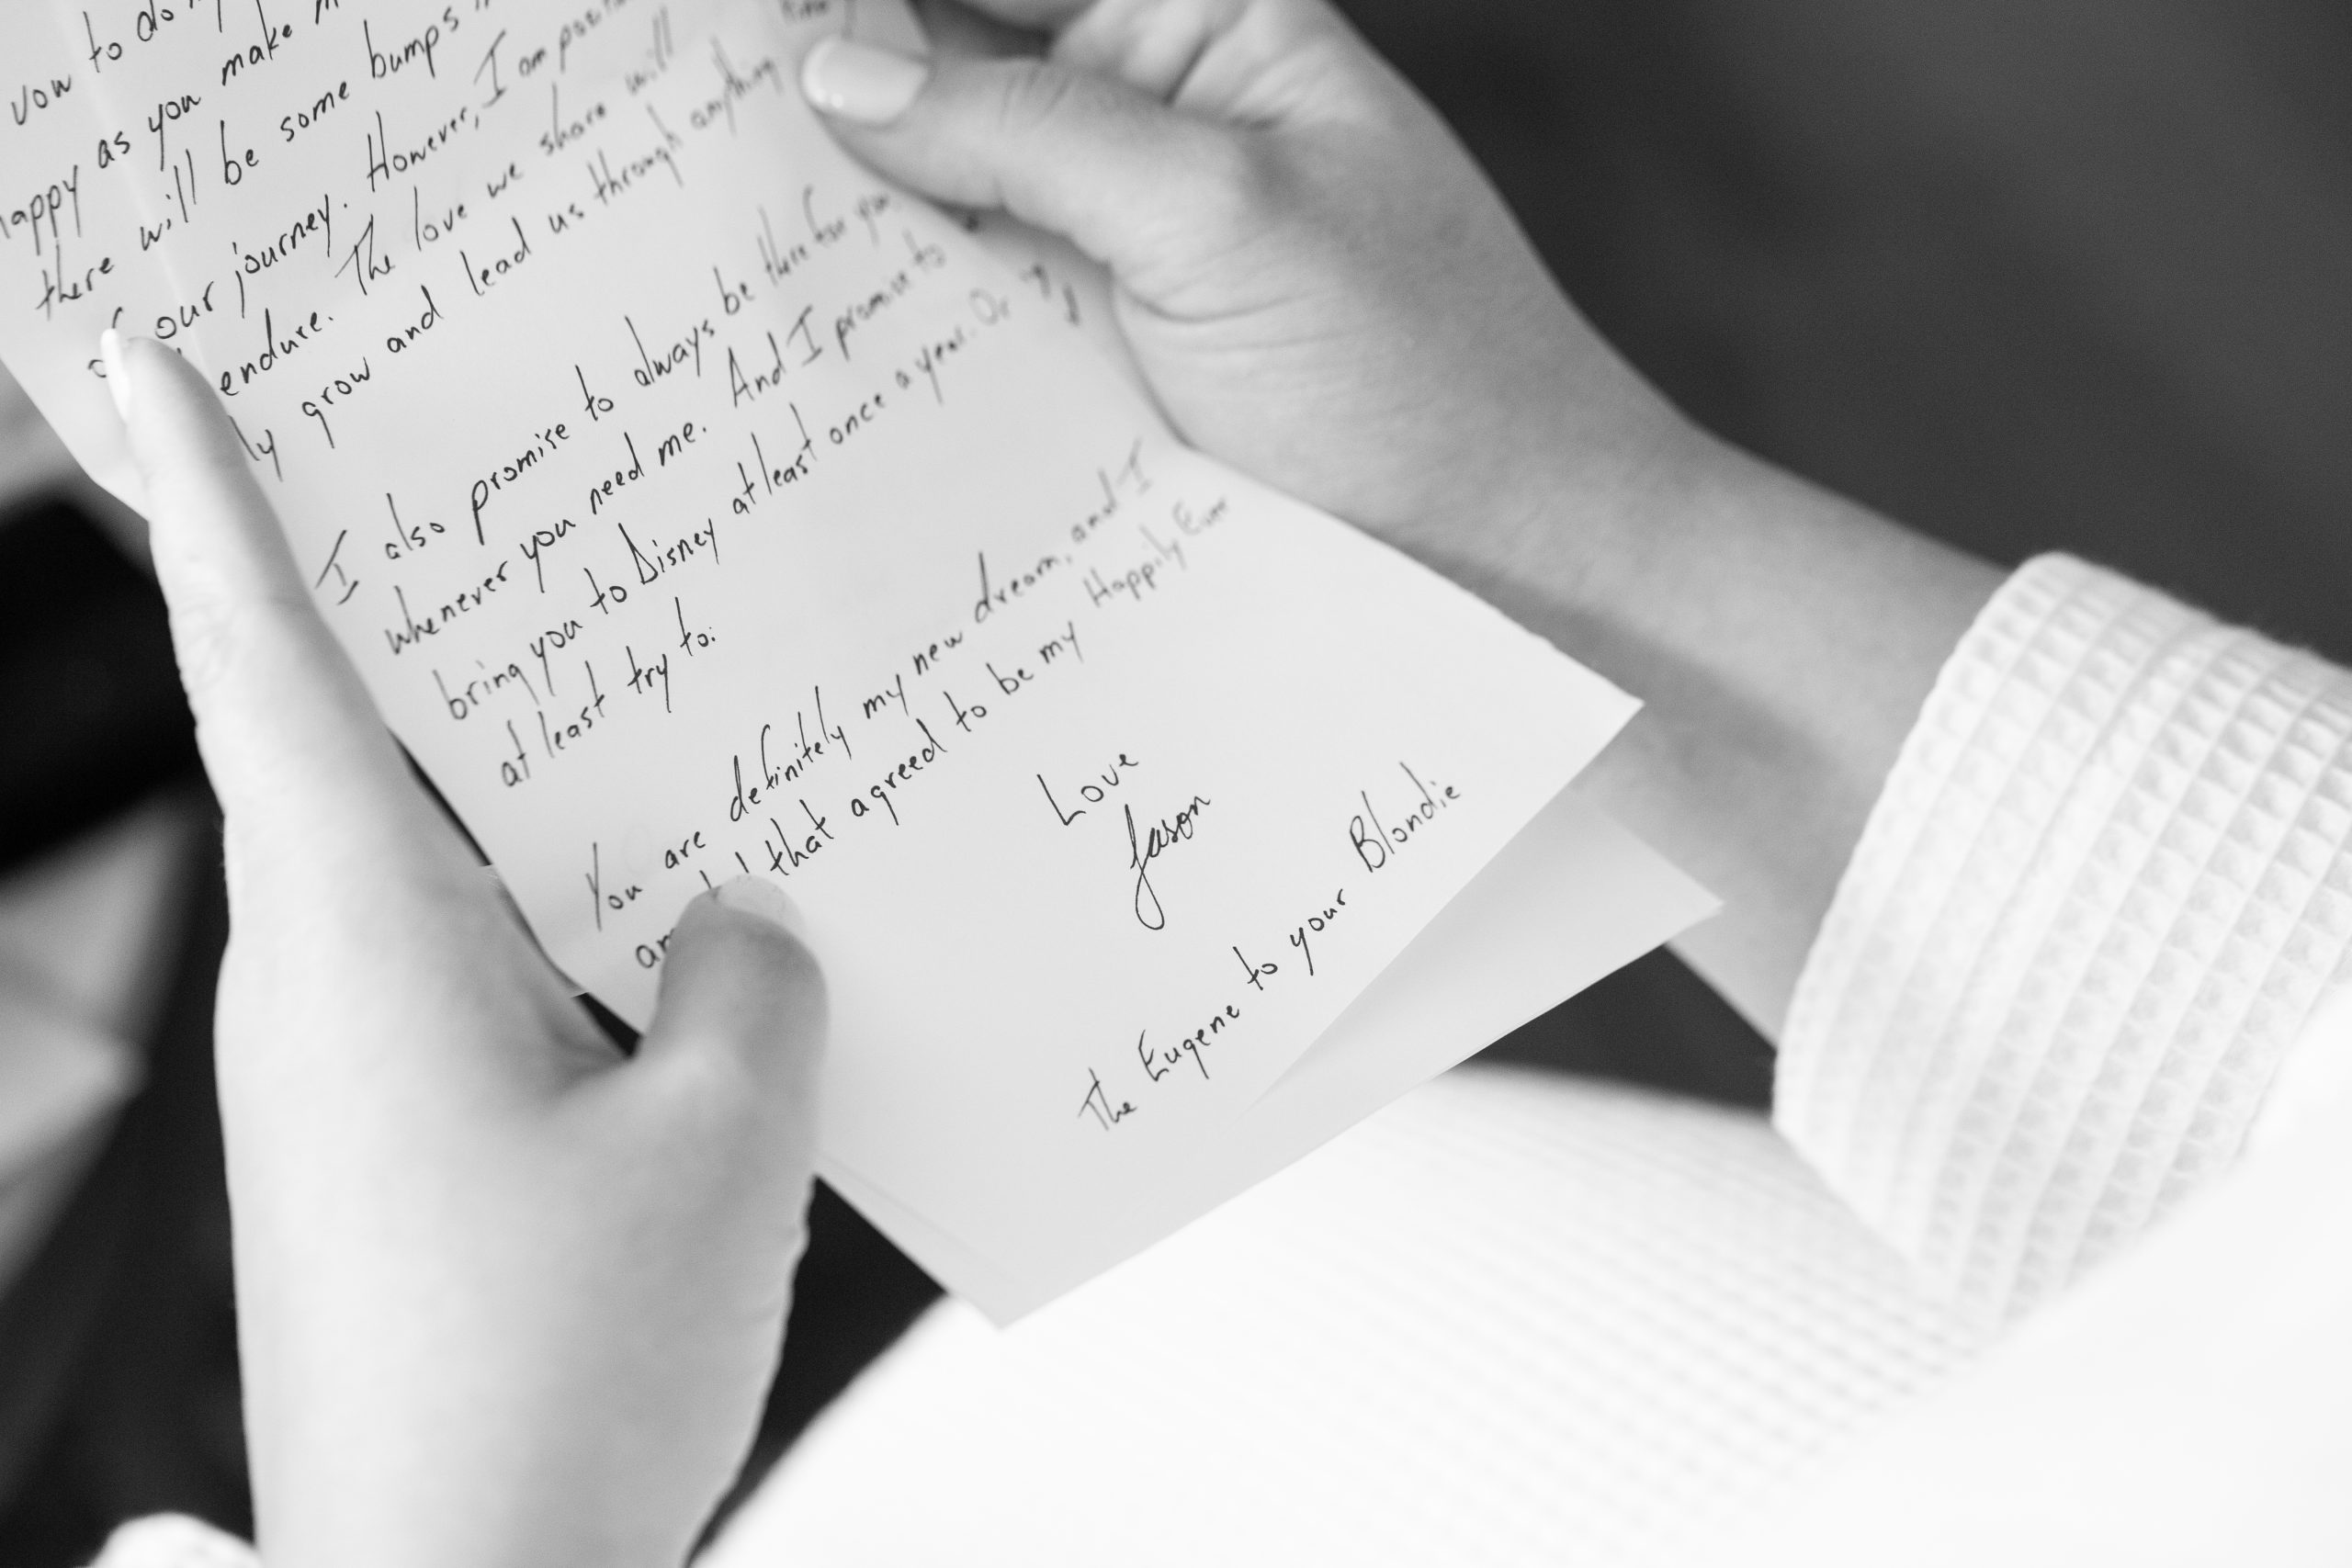 vow to do
happy as you make
there will be some bumps
of our journey. However, I am
endure. The love we share will
ly grow and lead us through anything
I also promise to always be there for you,
whenever you need me. And I promise to
bring you to Disney at least once a year. Or
at least try to.
You are definitely my new dream, and I
that agreed to be my Happily Ever
Love
Jason
The Eugene to your Blondie